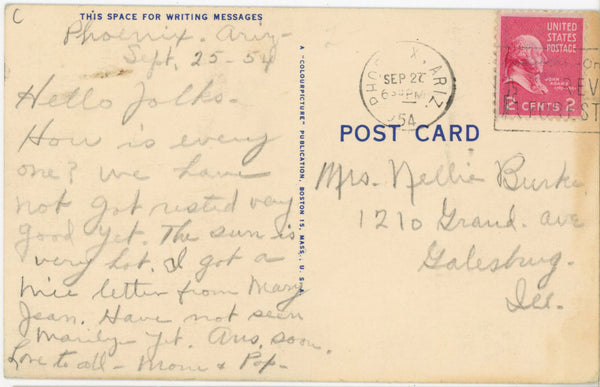 C
THIS SPACE FOR WRITING MESSAGES
Phoenix. Ariz-
Sept. 25-54
Hello Folks-
How is every
one? We have
not got rested very
good yet. The sun is
very hot. I got a
nice letter from Mary
Jean. Have not seen
Marilyn yt. Ans. soon.
Love to all - Mom & Pop-
A "COLOURPICTURE" PUBLICATION, BOSTON 15, MASS., U.S.A.
PHO X, ARIZ.
SEP 27
PM
54
UNITED
STATES
POSTAGE
JOHN ADAMS
2 CENTS 2
POST CARD
Mrs. Nellie Burke
1210 Grand. Ave
Galesburg.
Ill.